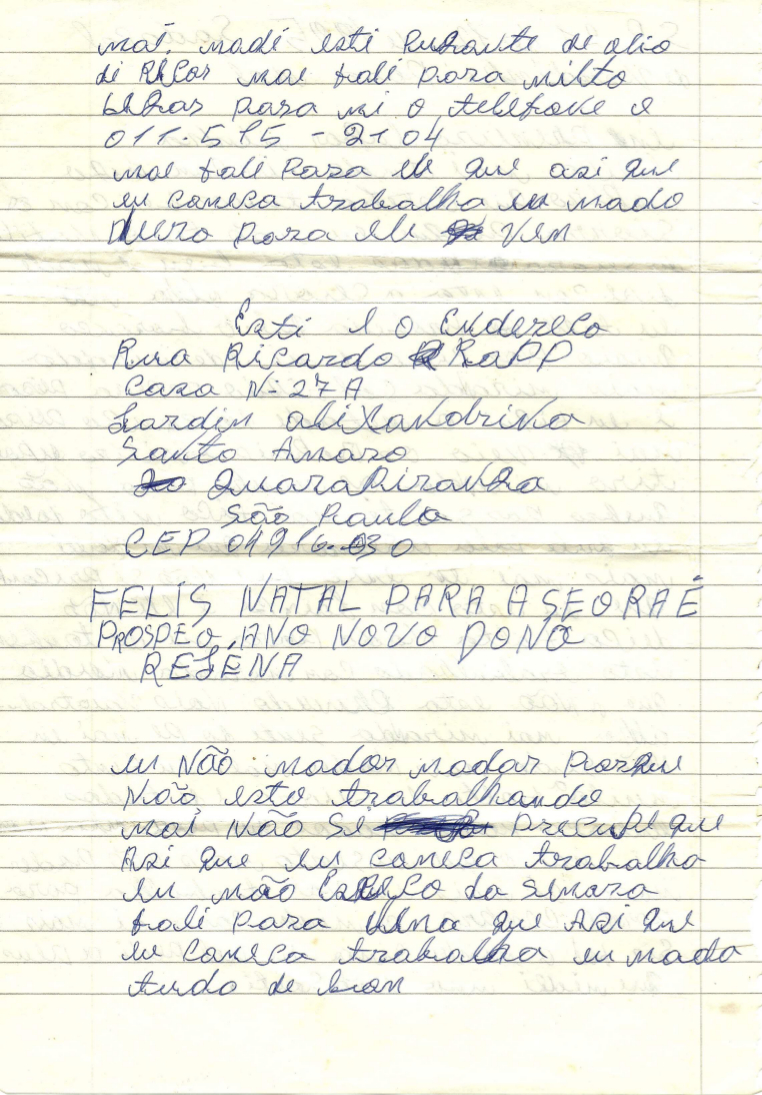 mai. madi esti Purante de alio
di Rhcor mai fali para milto
lihar para mi o telefone e
011.515-2104
mai fali para ele que asi que
eu comeca trabalha eu mado
para ele vem
Esti e o Endereco
Rua Ricardo RaPP
Casa N- 27 A
Jardin alixandrina
Santo Amaro
Guarapiranga
São Paulo
CEP 04916.030
FELIS NATAL PARA A SEORA É
PROSPEO, ANO NOVO DONA
REJÉNA
eu Não mador madar Porque
Não esto trabalhando
mai Não Se Precupe que
Asi que eu comeca trabalha
eu mão da Senora
fali para que Asi que
eu comeca trabalha eu mado
tudo de bom